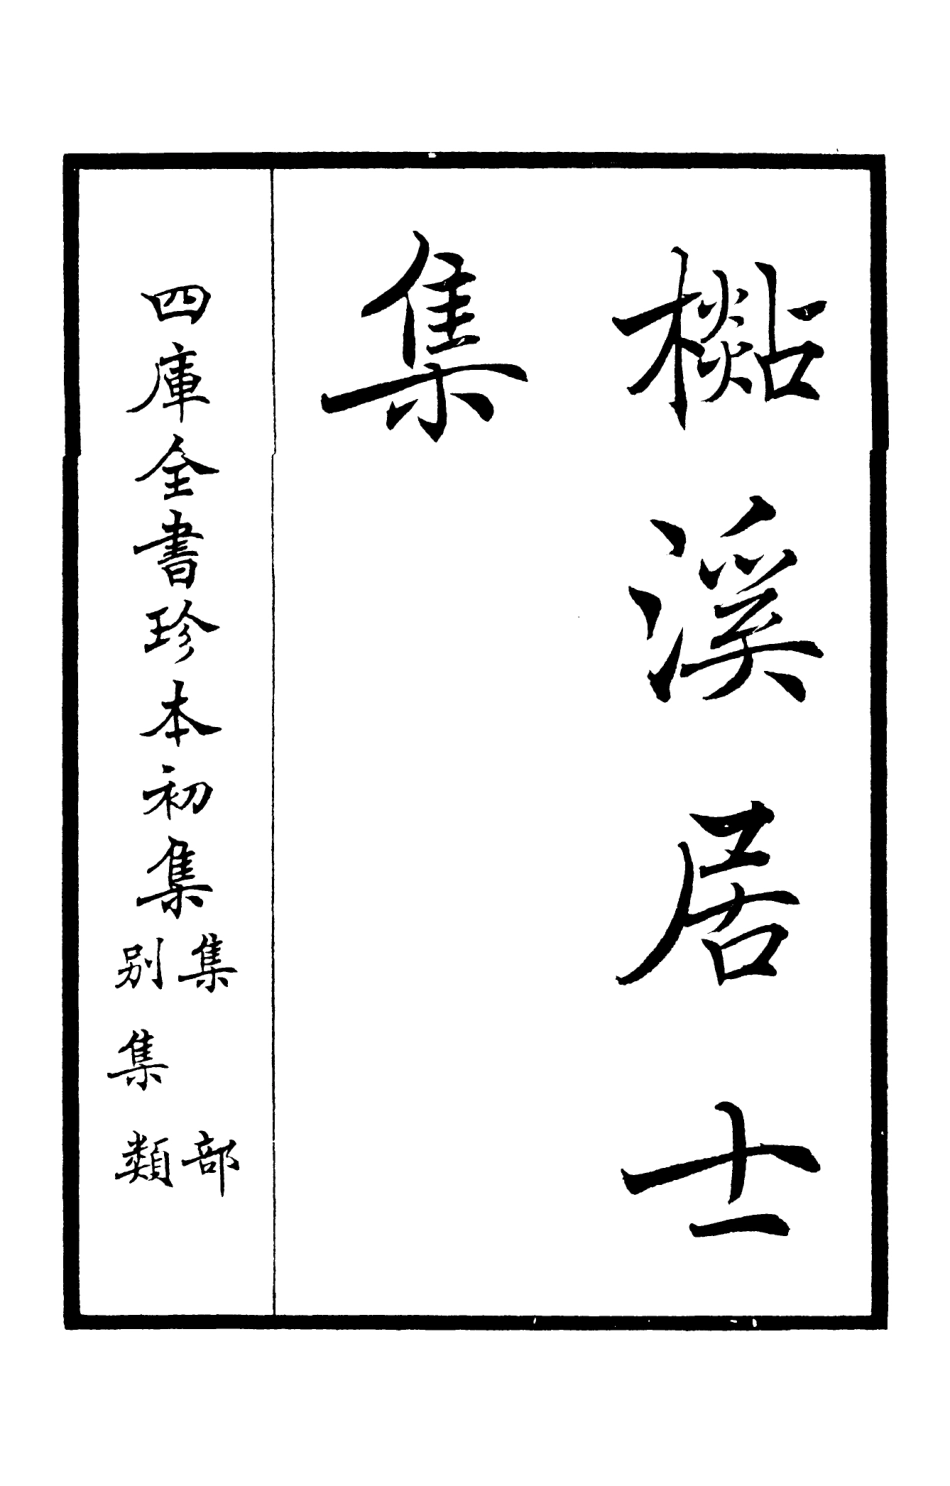 檆溪居士
集
四庫全書珍本初集
集部
别集類